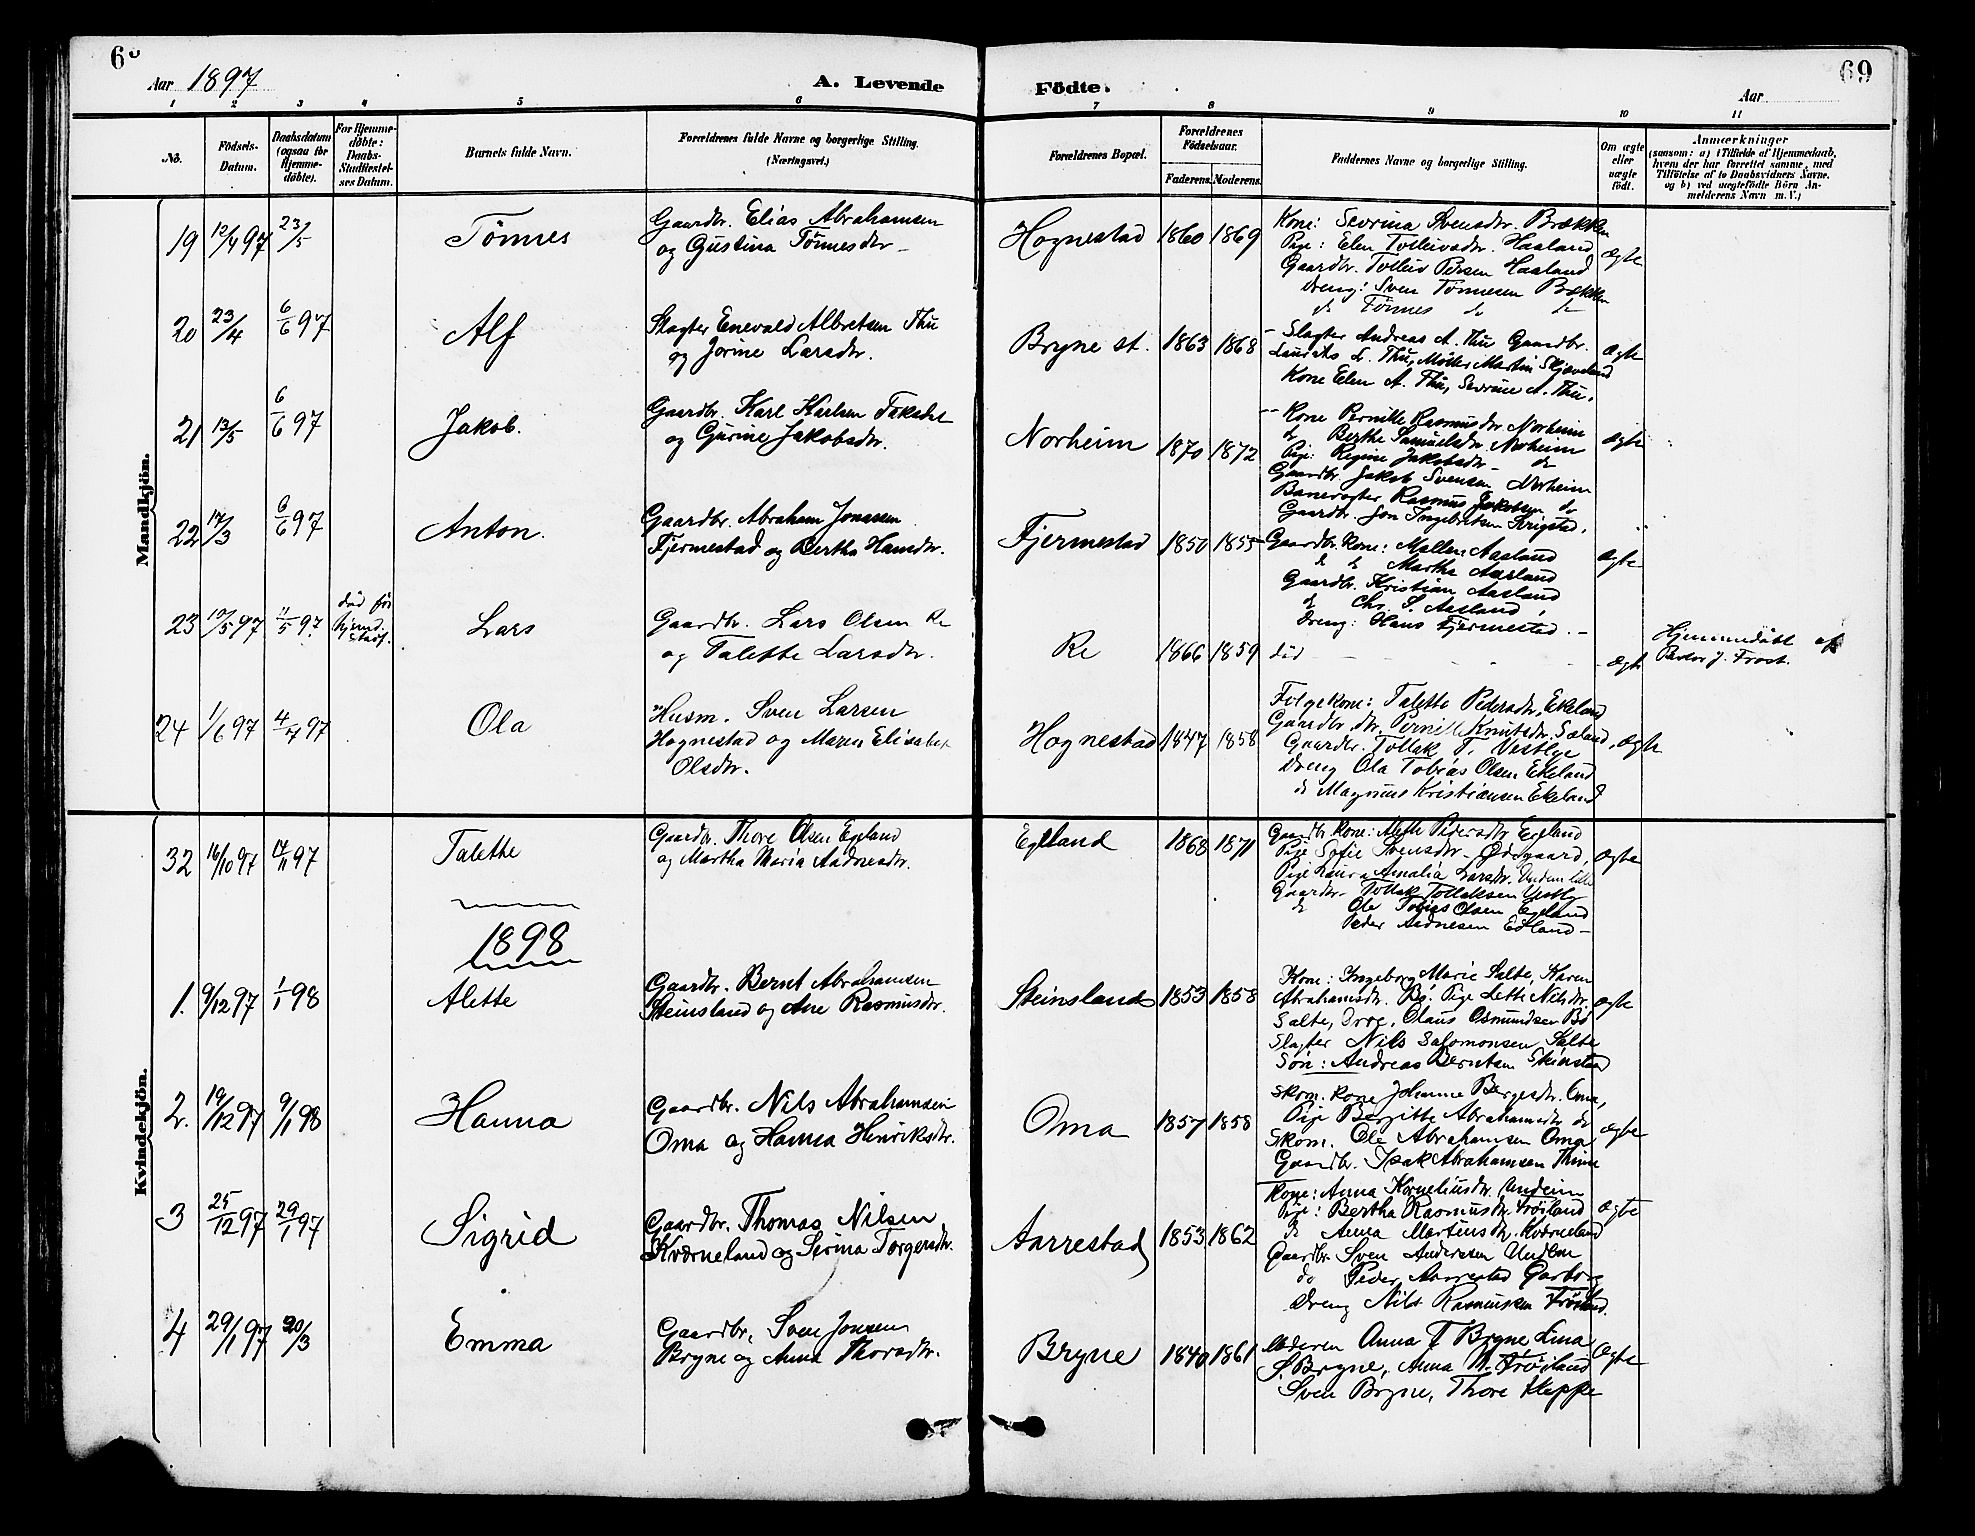 6
Aar 1897
A. Levende
Födte.
69
Aar
1 2 3 4 5 6 7 8 9 10 11
No.
Födsels-
Datum.
Daabsdatum
(ogsaa for
Hjemme-
døbte).
For Hjemme-
døbte:
Daabs-
Stadfæstel-
ses Datum.
Barnets fulde Navn.
Forældrenes fulde Navne og borgerlige Stilling.
(Næringsvei.)
Forældrenes Bopæl.
Forældrenes
Födselsaar.
Faderens. Moderens.
Faddernes Navne og borgerlige Stilling.
Om ægte
eller
uægte
født.
Anmærkninger
(saasom: a) i Tilfælde af Hjemmedaab,
hvem der har forrettet samme, med
Tilføielse af to Daabsvidners Navne,
og b) ved uægtefødte Börn An-
melderens Navn m. V.)
Mandkjön.
19 12/4 97 23/5 Tönnes
Gaardbr. Elias Abrahamsen
og Gustina Tönnesdtr –
Hognestad 1860 1869
Kone: Sevrina Svensdtr. Brækken
Pige: Elen Tollevsdtr. Haaland
Gaardbr. Tolleiv Persen Haaland
Dreng: Sven Tönnesen Bækken
do Tönnes do do
ægte
20 23/4 6/6 97 Alf
Slagter Enevald Albretsen Thu
og Jorine Larsdtr.
Bryne st. 1863 1868
– Slagter Andreas A. Thu Gaardbr.
Lauritz L. Thu, Møller Martin Skjæveland
Kone Elen A. Thu, Sevrine A. Thu.
ægte
21 13/5 6/6 97 Jakob.
Gaardbr. Karl Karlsen Taksdal
og Gurine Jakobsdtr.
Norheim 1870 1872
– Kone Pernille Rasmusdtr Norheim
do Berthe Samuelsdtr. Norheim
Pige: Regine Jakobsdtr – do
Gaardbr Jakob Svensen Norheim
Banevogter Rasmus Jakobsen do
Gaardbr. Jon Ingebretsen Serigstad.
ægte
22 17/3 6/6 97 Anton.
Gaardbr. Abraham Jonassen
Fjermestad og Berthe Hansdtr.
Fjermestad 1850 1855
– Gaardbr. Kone: Mallene Aasland
do do Marthe Aasland
Gaardbr. Kristian Aasland
do Chr. S. Aasland,
Dreng: Hans Fjermestad. –
ægte
23 10/5 97 11/5 97. død før
Lars
Gaardbr. Lars Olsen Re
og Talette Larsdtr.
Re 1866 1859
død – – – – ægte
Hjemmedøbt af
Pastor J. Frost.
24 1/6 97 4/7 97 Ola
Husm. Sven Larsen
Hognestad og Maren Elisabet
Olsdtr.
Hognestad 1847 1858
Følgekone: Talette Pedersdtr, Ekeland
Gaardbr. dtr. Pernille Knutsdtr. Sæland,
Gaardbr. Tollak T. Vestlye
Dreng Ola Tobias Olsen Ekeland
do Magnus Kristiansen Ekeland
ægte
Kvindekjön.
32 16/10 97 14/11 97 Talette
Gaardbr. Thore Olsen Egeland
og Martha Maria Aadnesdtr.
Egeland 1868 1871
Gaardbr Kone: Mette Pedersdtr Egeland
Pige Sofie Svensdtr – Ødegaard,
Pige Laura Amalia Larsdtr. Undem lille
Gaardbr – Tollak Tollaksen Vestly
do Ole Tobias Olsen Egeland
Peder Aadnesen Edland –
ægte
1898
1. 9/12 97 1/1 98 Alette
Gaardbr. Bernt Abrahamsen
Steinsland og Ane Rasmusdtr.
Steinsland 1853 1858
Kone: Ingeborg Marie Salte, Karen
Abrahamsdtr. Bø. Pige Lette Nilsdtr.
Salte, Drg. Olaus Osmundsen Bø
Slagter Nils Salomonsen Salte
Søn: Andreas Berntsen
ægte
2. 19/12 97 9/1 98 Hanna
Gaardbr. Nils Abrahamsen
Oma og Hanna Henriksdtr.
Oma 1857 1858
Skom. Kone Johanne Børgesdtr. Oma,
Pige Bergitte Abrahamsdtr do
Skom. Ole Abrahamsen Oma
Gaardbr. Isak Abrahamsen Thime
ægte
3 25/12 97 29/1 97 Sigrid
Gaardbr. Thomas Nilsen
Kværneland og Serina Torgersdtr.
Aarrestad 1853 1862
Kone: Anna Korneliusdtr. Undeim
Pige: Bertha Rasmusdtr. Frøiland
do Anna Martinsdtr. Kværneland
Gaardbr Sven Andersen Undem
do Peder Aarrestad Garborg
Dreng Nils Rasmussen Frøiland.
ægte
4 29/1 97 20/3 Emma
Gaardbr. Sven Jonsen
Bryne og Anna Thorsdtr.
Bryne 1840 1861
Moderen Anna T Bryne Lina
S. Bryne, Anna N. Frøiland
Sven Bryne, Thore Heppe
Ægte